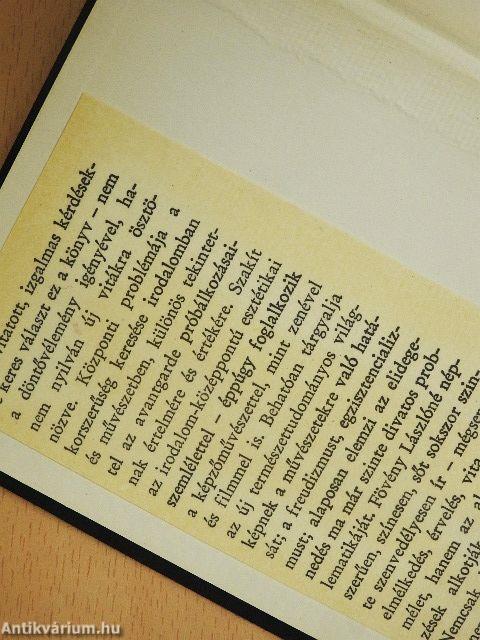 vitatott, izgalmas kérdések-
keres választ ez a könyv – nem
a döntővélemény igényével, ha-
nem nyilván új vitákra ösztö-
nözve. Központi problémája a
konszerűség keresése irodalomban
és művészetben, különös tekintet-
tel az avantgarde próbálkozásai-
nak értelmére és értékére. Szakít
az irodalom-középpontú esztétikai
szemlélettel – éppúgy foglalkozik
a képzőművészettel, mint zenével
és filmmel is. Behatóan tárgyalja
az új természettudományos világ-
képnek a művészetekre való hatá-
sát; a freudizmust, egzisztencializ-
must; alaposan elemzi az elidege-
nedés ma már szinte divatos prob-
lematikáját. Fövény Lászlóné nép-
szerűen, színesen, sőt sokszor szin-
te szenvedélyesen ír – mégsem
elmélkedés, érvelés, vita
mélet, hanem az al
ések alkotják
Nemcsak
Antikvárium.hu